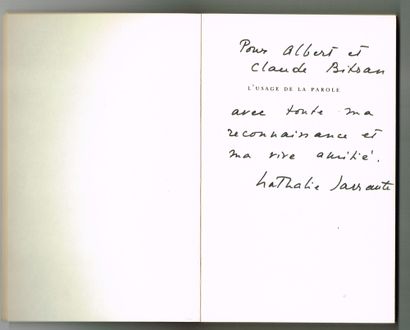 Pour Albert et
Claude Bitran
L'USAGE DE LA PAROLE
avec toute ma
reconnaissance et
ma vive amitié.
Nathalie Sarraute